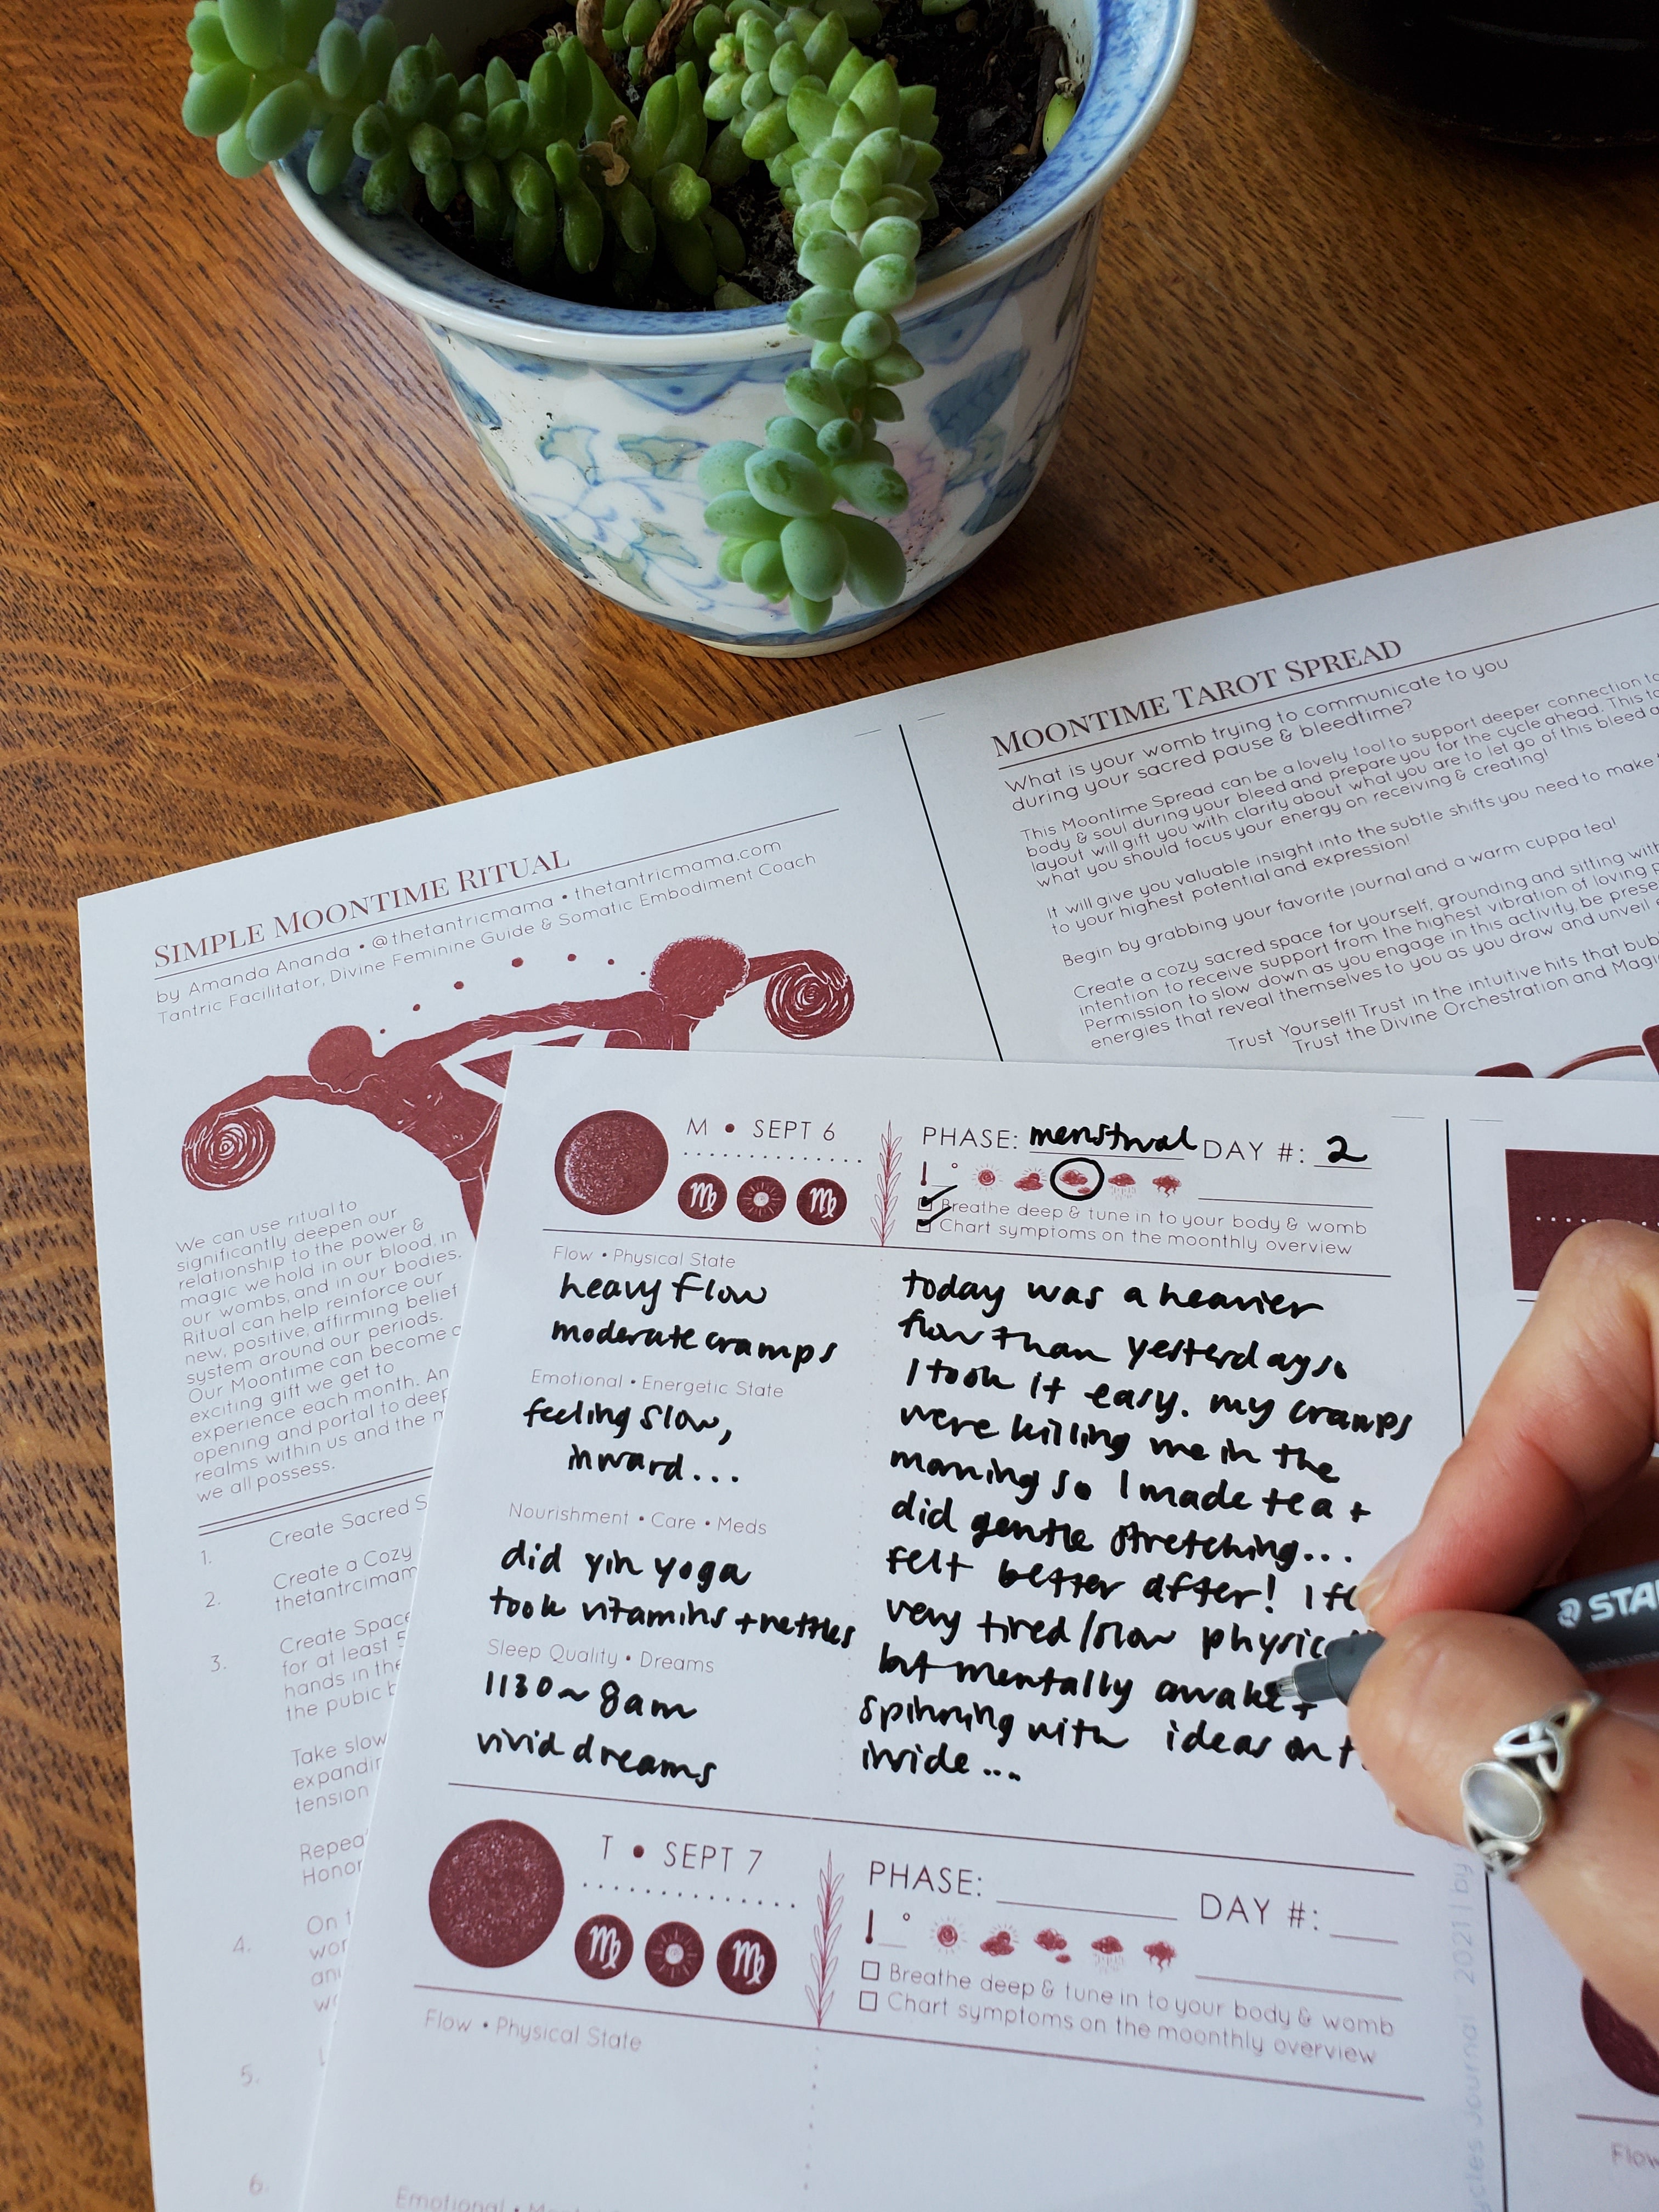 MOONTIME TAROT SPREAD
What is your womb trying to communicate to you
during your sacred pause & bleedtime?
This Moontime Spread can be a lovely tool to support deeper connection to
body & soul during your bleed and prepare you for the cycle ahead. This
layout will gift you with clarity about what you are to let go of this bleed
what you should focus your energy on receiving & creating!
It will give you valuable insight into the subtle shifts you need to make
to your highest potential and expression!
Begin by grabbing your favorite journal and a warm cuppa tea!
Create a cozy sacred space for yourself, grounding and sitting with
intention to receive support from the highest vibration of loving
Permission to slow down as you engage in this activity, be
energies that reveal themselves to you as you draw and unveil
Trust Yourself! Trust in the intuitive hits that
Trust the Divine Orchestration and
SIMPLE MOONTIME RITUAL
by Amanda Ananda • @thetantricmama • thetantricmama.com
Tantric Facilitator, Divine Feminine Guide & Somatic Embodiment Coach
We can use ritual to
significantly deepen our
relationship to the power &
magic we hold in our blood, in
our wombs, and in our bodies.
Ritual can help reinforce our
new, positive, affirming belief
system around our periods.
Our Moontime can become
exciting gift we get to
experience each month. An
opening and portal to
realms within us and the
we all possess.
1. Create Sacred
2. Create a Cozy
thetantrcimam
3. Create Space
for at least
hands in the
the pubic
Take slow
tension
4. On
5.
6.
M • SEPT 6
PHASE: menstrual DAY #: 2
°
Breathe deep & tune in to your body & womb
Chart symptoms on the moonthly overview
Flow • Physical State
heavy flow
moderate cramps
Emotional • Energetic State
feeling slow,
inward...
Nourishment • Care • Meds
did yin yoga
took vitamins + nettles
Sleep Quality • Dreams
1130~8am
vivid dreams
today was a heavier
flow than yesterday so
I took it easy. my cramps
were killing me in the
morning so I made tea +
did gentle stretching...
felt better after! I
very tired/slow
but mentally awake +
spinning with ideas on
inside...
T • SEPT 7
PHASE: DAY #:
°
Breathe deep & tune in to your body & womb
Chart symptoms on the moonthly overview
Flow • Physical State
Emotional •
Journal 2021 | by